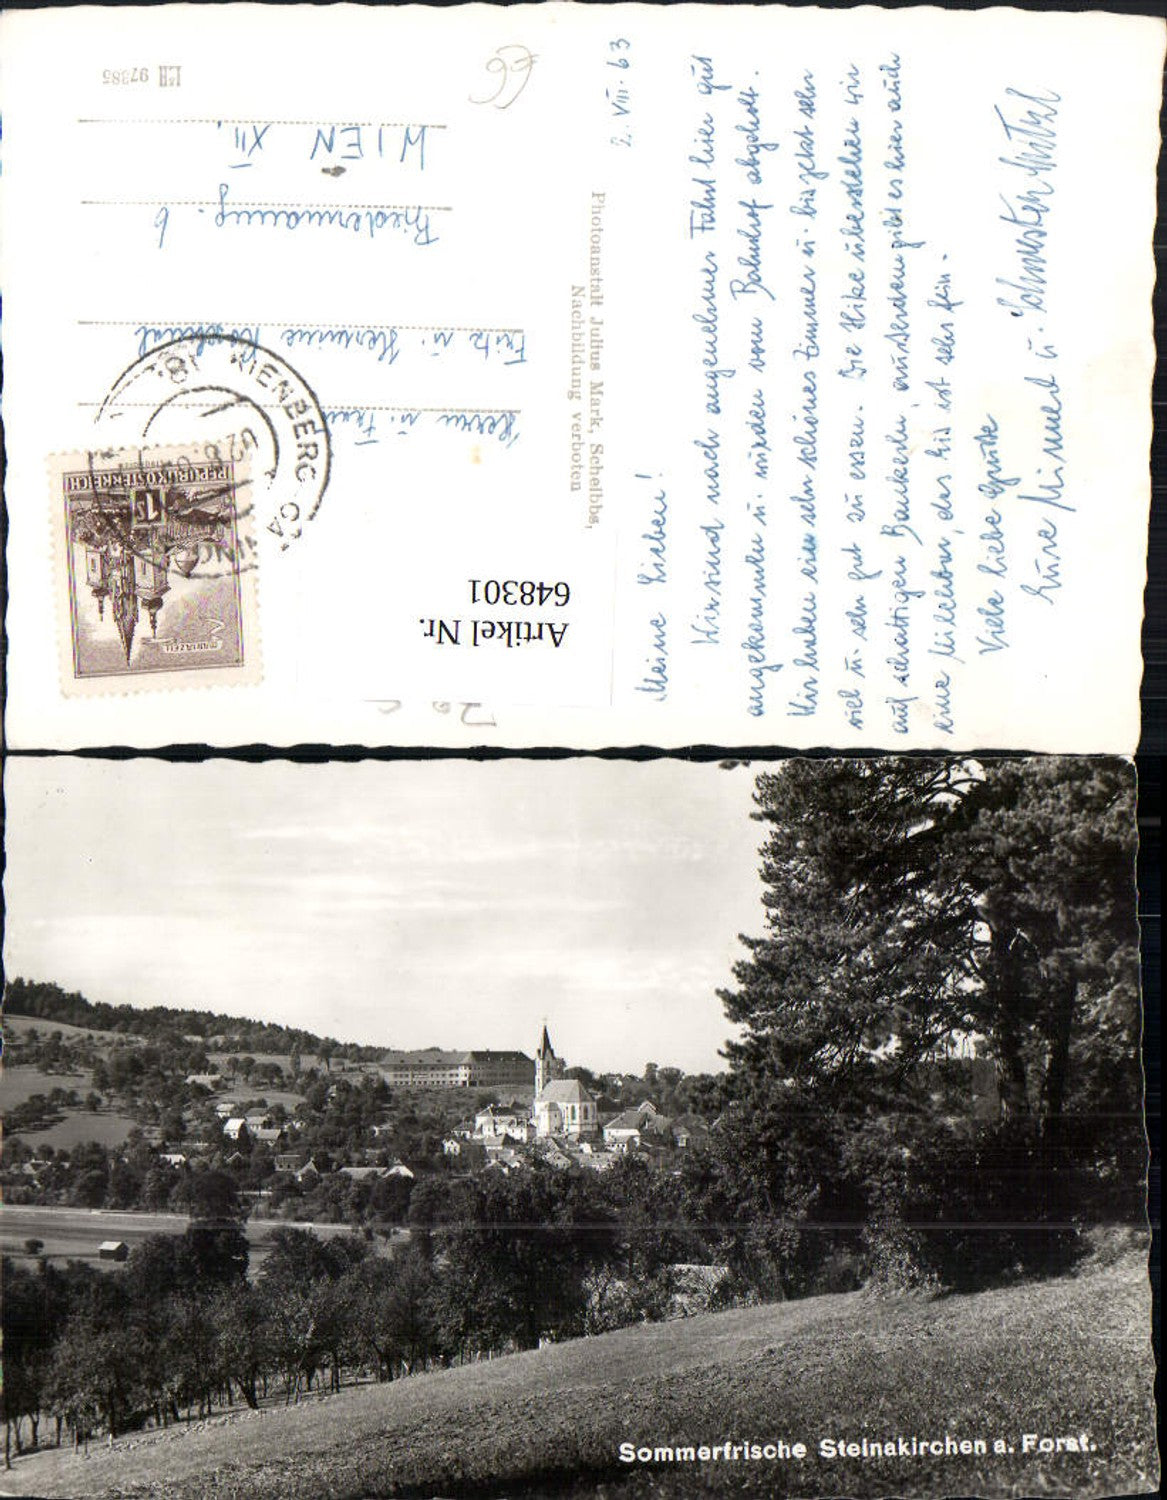 2. VIII. 63
Meine Lieben!
Wir sind nach angenehmer Fahrt hier gut
angekommen u. wurden vom Bahnhof abgeholt.
Wir haben ein sehr schönes Zimmer u. bis jetzt sehr
viel u. sehr gut zu essen. Die Hitze überstehen wir
auf schattigen Bankerln, außerdem gibt es hier auch
eine Milchbar, das Eis ist sehr fein.
Viele liebe Grüße
Eure u.
Photoanstalt Julius Mark, Scheibbs,
Nachbildung verboten
Herrn u. Frau
Fritz u. Hermine
6
WIEN XII.
L&H 97385
66
REPUBLIK ÖSTERREICH
1 S
MARIAZELL
WIENBERG-GA
Artikel Nr.
648301
Sommerfrische Steinakirchen a. Forst.